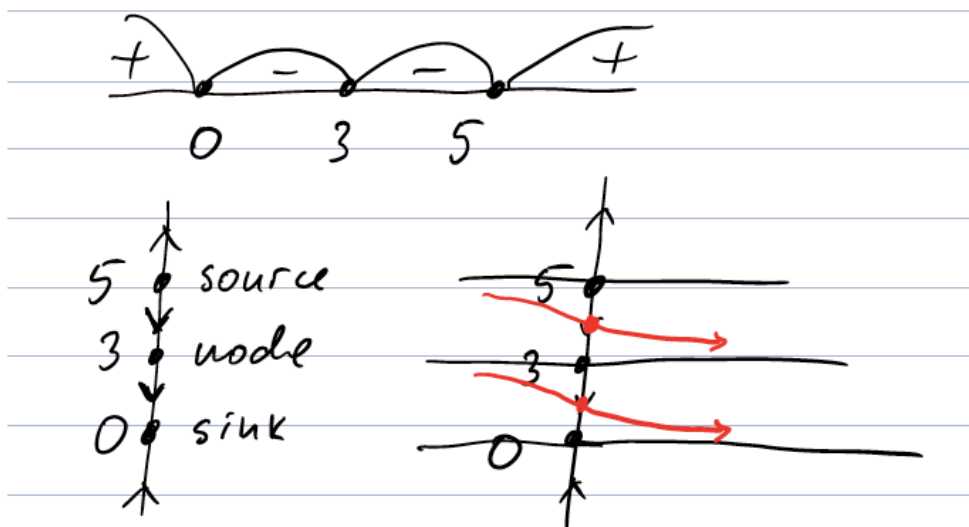 + - - +
0 3 5
5 source
3 node
0 sink
5
3
0